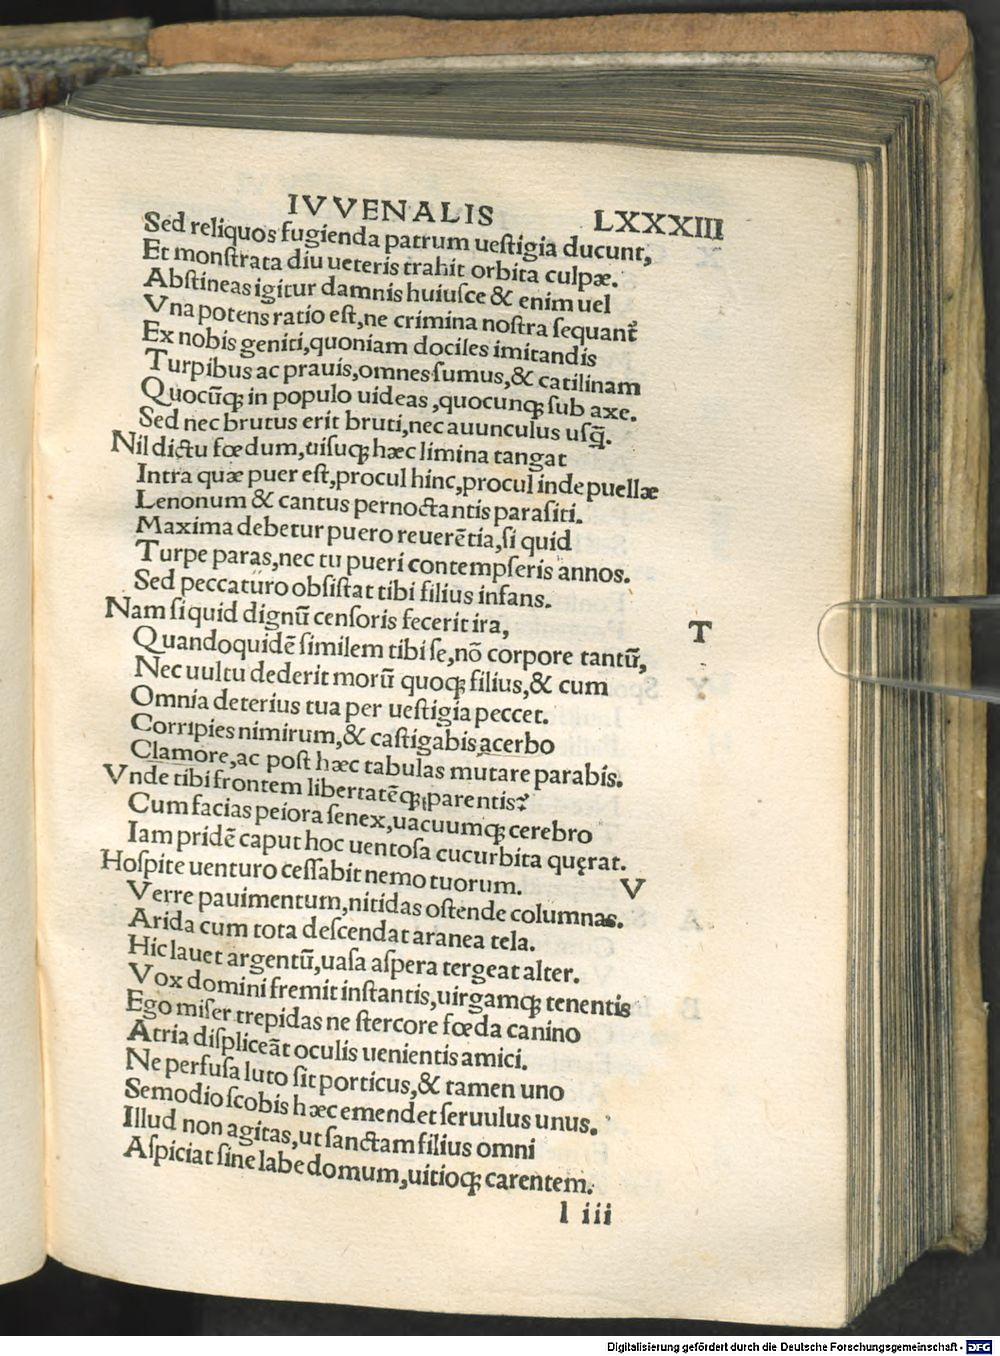 IVVENALIS LXXXIII
Sed reliquos fugienda patrum ueſtigia ducunt,
Et monſtrata diu ueteris trahit orbita culpæ.
Abſtineas igitur damnis huiuſce & enim uel
Vna potens ratio eſt,ne crimina noſtra ſequant᷑
Ex nobis geniti,quoniam dociles imitandis
Turpibus ac prauis,omnes ſumus,& catilinam
Quocūq; in populo uideas,quocunq; ſub axe.
Sed nec brutus erit bruti,nec auunculus uſq̄.
Nil dictu fœdum,uiſuq; hæc limina tangat
Intra quæ puer eſt,procul hinc,procul inde puellæ
Lenonum & cantus pernoctantis paraſiti.
Maxima debetur puero reuerētia,ſi quid
Turpe paras,nec tu pueri contempſeris annos.
Sed peccatūro obſiſtat tibi filius infans.
Nam ſi quid dignū cenſoris fecerit ira, T
Quandoquidē ſimilem tibi ſe,nō corpore tantū,
Nec uultu dederit morū quoq; filius,& cum
Omnia deterius tua per ueſtigia peccet.
Corripies nimirum,& caſtigabis acerbo
Clamore,ac poſt hæc tabulas mutare parabis.
Vnde tibi frontem libertatēq; parentis?
Cum facias peiora ſenex,uacuumq; cerebro
Iam pridē caput hoc uentoſa cucurbita quęrat.
Hoſpite uenturo ceſſabit nemo tuorum. V
Verre pauimentum,nitidas oſtende columnas.
Arida cum tota deſcendat aranea tela.
Hic lauet argentū,uaſa aſpera tergeat alter.
Vox domini fremit inſtantis,uirgamq; tenentis
Ego miſer trepidas ne ſtercore fœda canino
Atria diſpliceāt oculis uenientis amici.
Ne perfuſa luto ſit porticus,& tamen uno
Semodio ſcobis hæc emendet ſeruulus unus.
Illud non agitas,ut ſanctam filius omni
Aſpiciat ſine labe domum,uitioq; carentem.
l iii
Digitalisierung gefördert durch die Deutsche Forschungsgemeinschaft - DFG